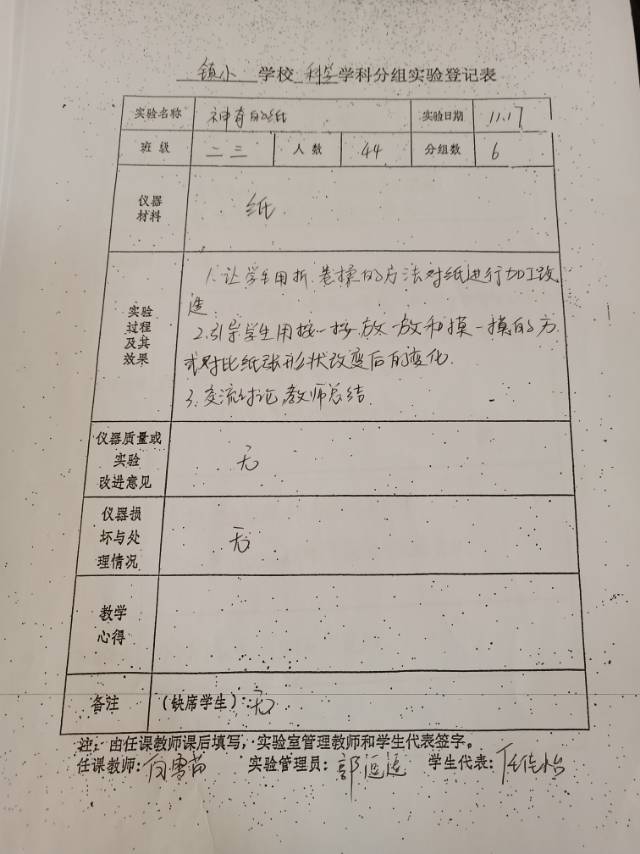 镇小 学校 科学 学科分组实验登记表
实验名称 神奇的纸 实验日期 11.17
班级 二三 人数 44 分组数 6
仪器材料 纸
实验过程及其效果
1.让学生用折.卷揉的方法对纸进行加工改
造
2.引导学生用按一按.放一放和摸一摸的方.
式对比纸张形状改变后的变化.
3.交流讨论,教师总结.
仪器质量或实验改进意见 无
仪器损坏与处理情况 无
教学心得
备注 (缺席学生):无
注:由任课教师课后填写,实验室管理教师和学生代表签字。
任课教师: 实验管理员:郭 学生代表:任佳怡